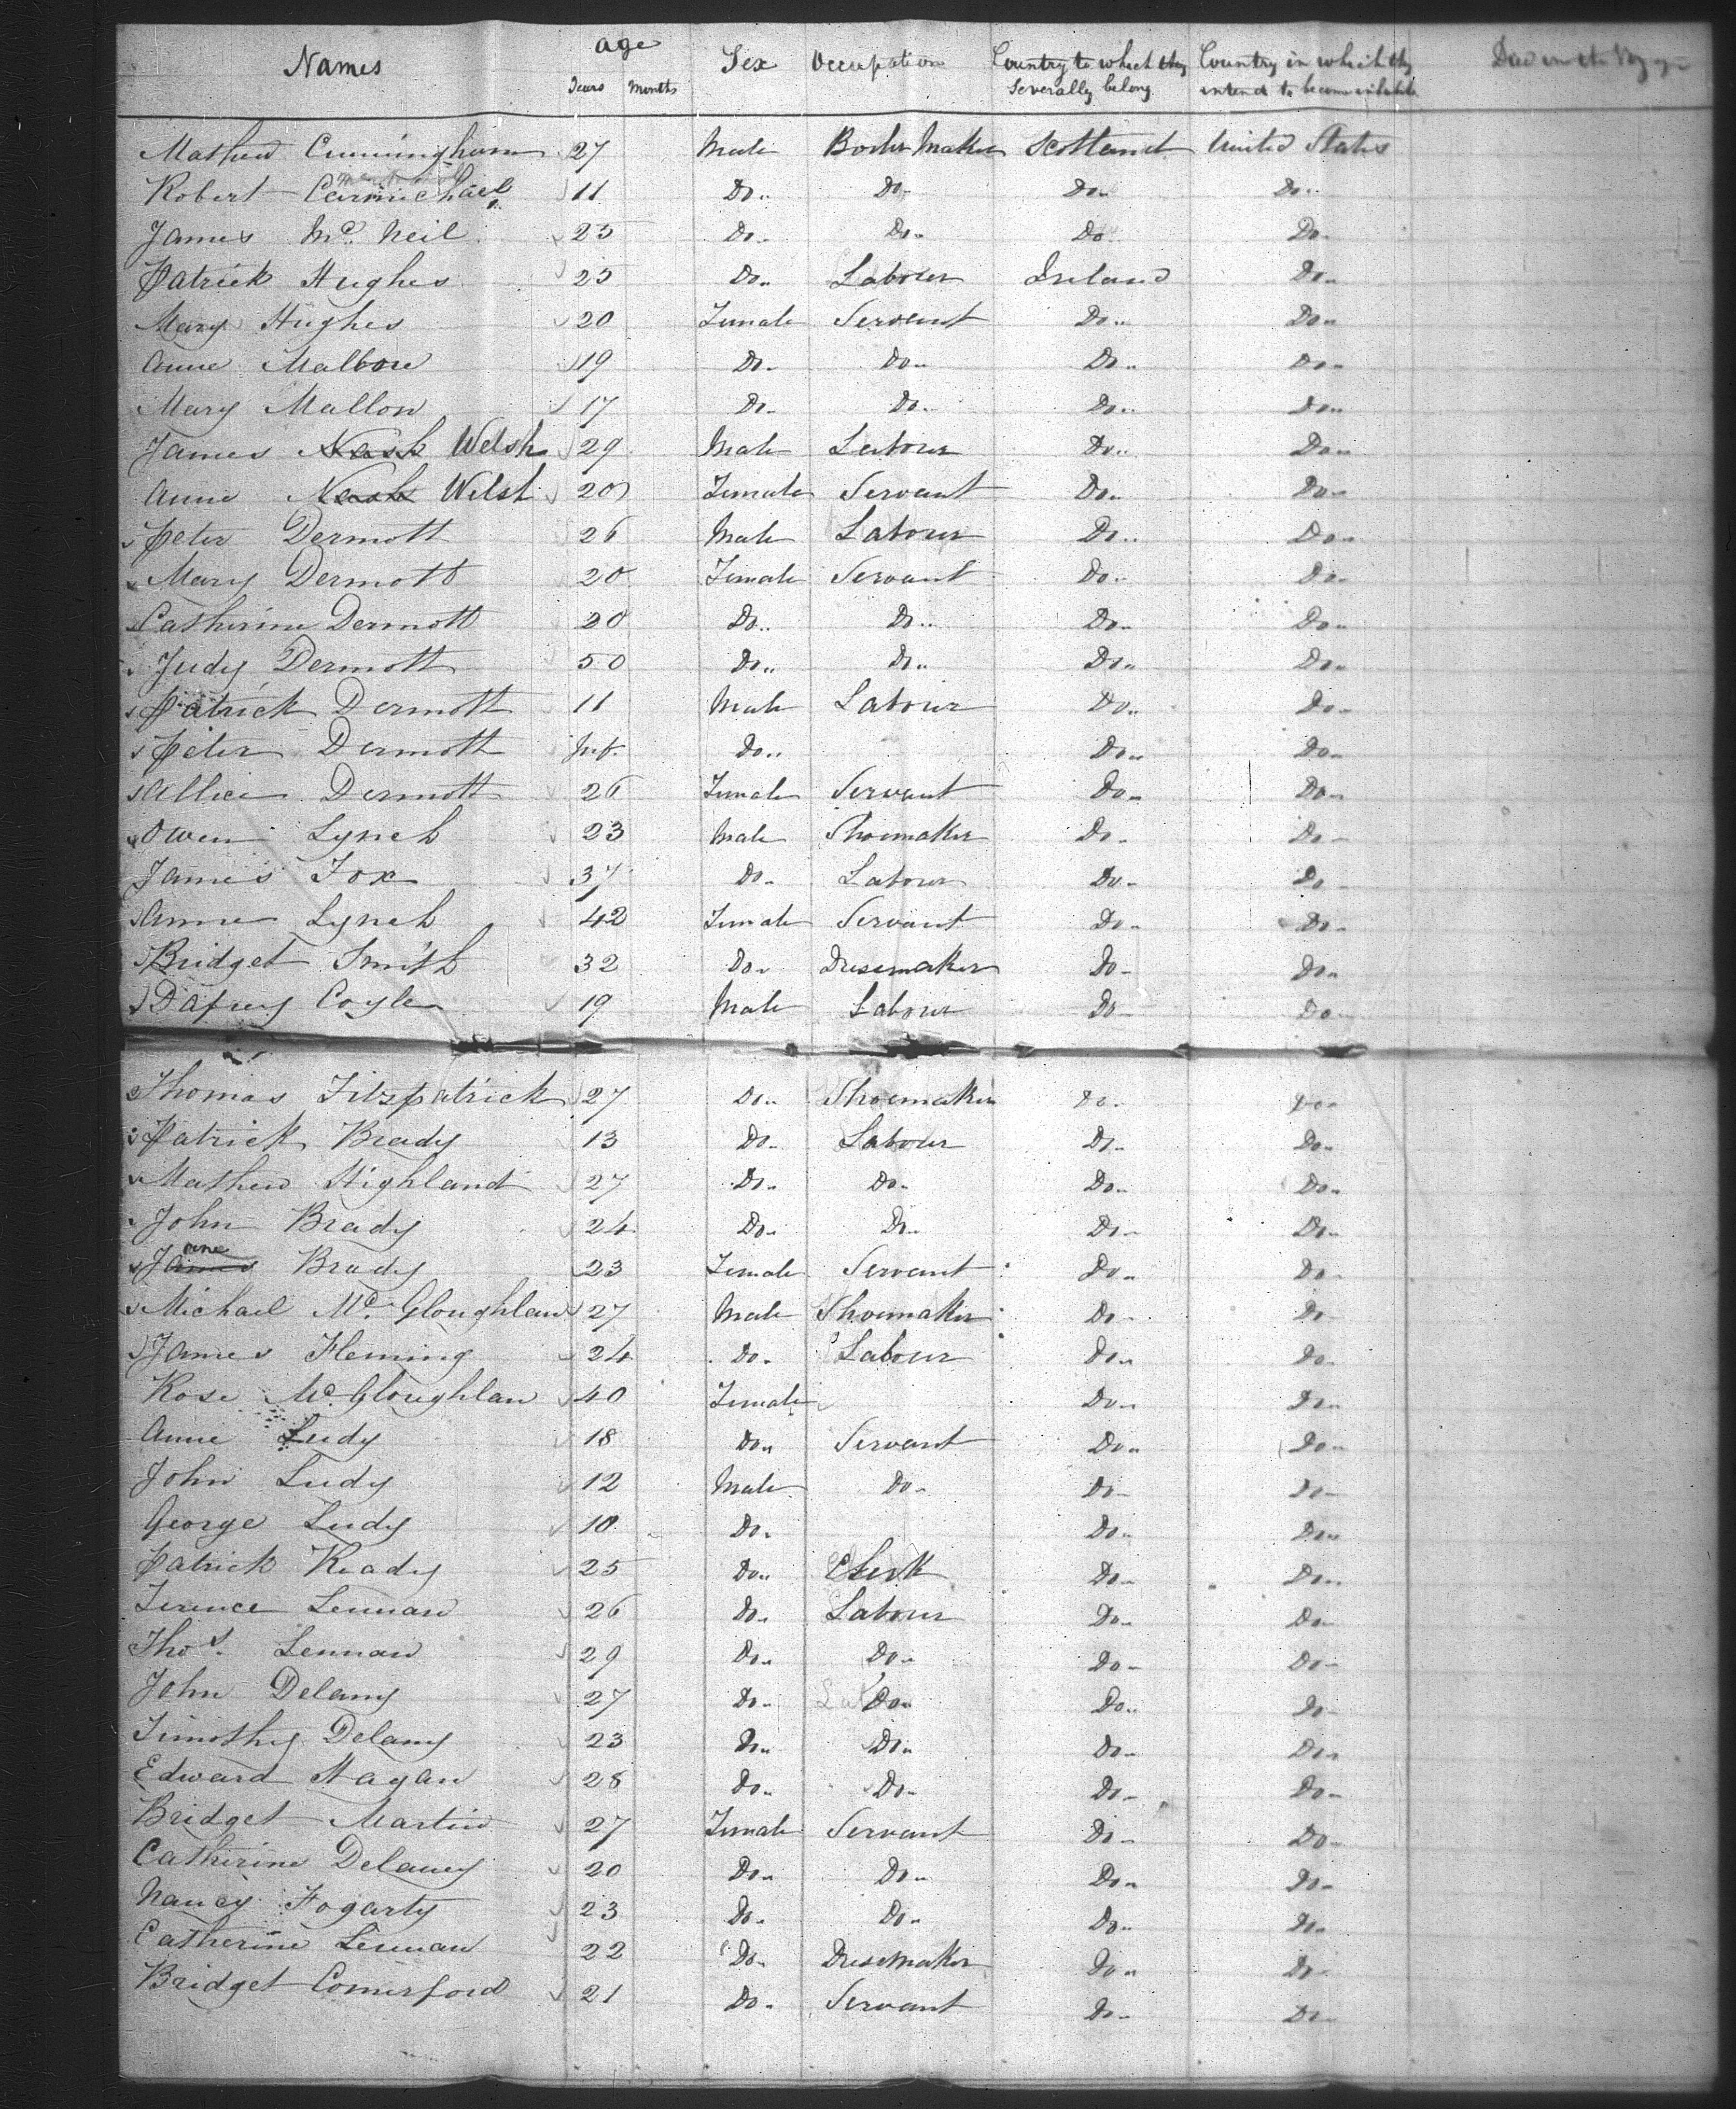 Names age Sex Occupation Country to which they Country in which they Died on the Voyage
Years Months severally belong intend to become inhabitants
Mathew Cunningham 27 Male Boiler Maker Scotland United States
Robert Carmichael 11 Do Do Do Do
James Mc Neil 25 Do Do Do Do
Patrick Hughes 25 Do Labour Ireland Do
Mary Hughes 20 Female Servant Do Do
Anne Mallon 19 Do Do Do Do
Mary Mallon 17 Do Do Do Do
James Nash Welsh 29 Male Labour Do Do
Anne Nash Welsh 20 Female Servant Do Do
Peter Dermott 26 Male Labour Do Do
Mary Dermott 20 Female Servant Do Do
Catherine Dermott 30 Do Do Do Do
Judy Dermott 50 Do Do Do Do
Patrick Dermott 11 Male Labour Do Do
Peter Dermott Inf. Do Do Do
Allice Dermott 26 Female Servant Do Do
Owen Lynch 23 Male Shoemaker Do Do
James Fox 37 Do Labour Do Do
Anne Lynch 42 Female Servant Do Do
Bridget Smith 32 Do Dressmaker Do Do
Coyle 19 Male Labour Do Do
Thomas Fitzpatrick 27 Do Shoemaker Do Do
Patrick Brady 13 Do Labour Do Do
Mathew Highland 27 Do Do Do Do
John Brady 24 Do Do Do Do
ane
James Brady 23 Female Servant Do Do
Michael Mc Gloughlan 27 Male Shoemaker Do Do
James Fleming 24 Do Labour Do Do
Rose Mc Gloughlan 40 Female Do Do
Anne Ludy 18 Do Servant Do Do
John Ludy 12 Male Do Do Do
George Ludy 10 Do Do Do
Patrick Keady 25 Do Clerk Do Do
Terence Lennan 26 Do Labour Do Do
Thos. Lennan 29 Do Do Do Do
John Delany 27 Do Do Do Do
Timothy Delany 23 Do Do Do Do
Edward Hagan 28 Do Do Do Do
Bridget Martin 27 Female Servant Do Do
Catherine Delaney 20 Do Do Do Do
Nancy Fogarty 23 Do Do Do Do
Catherine Lennan 22 Do Dressmaker Do Do
Bridget Comerford 21 Do Servant Do Do